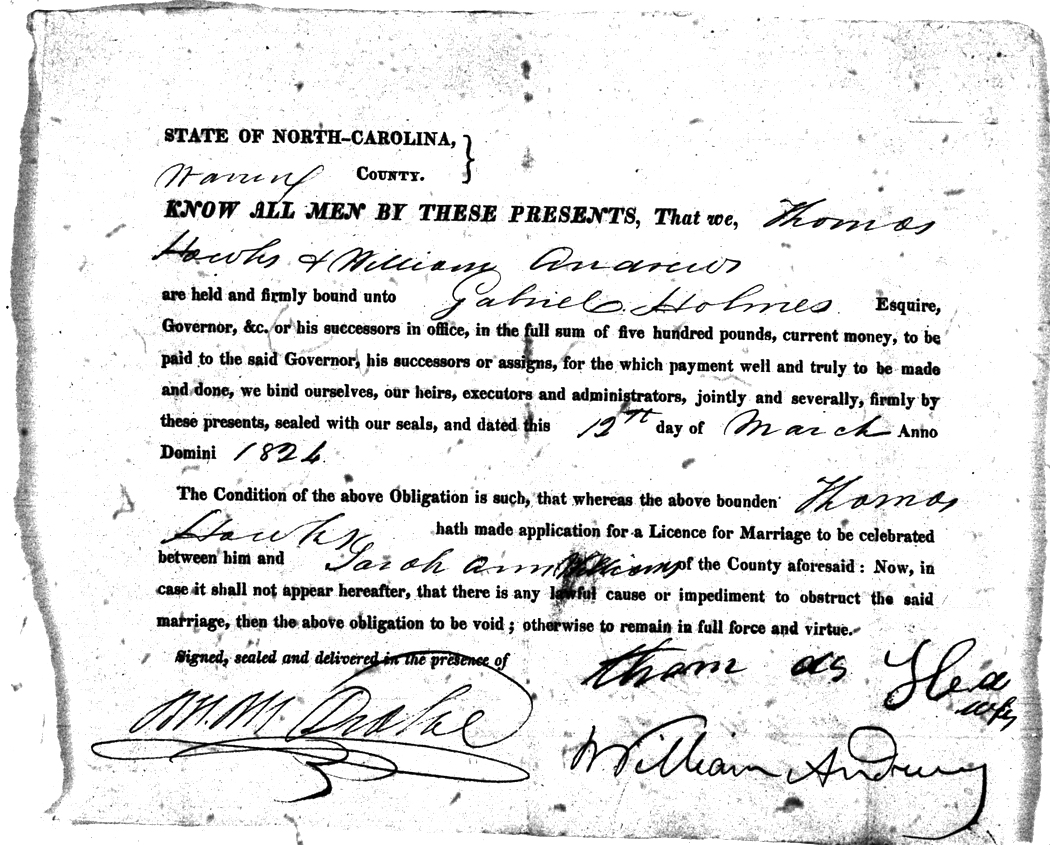 STATE OF NORTH-CAROLINA, }
Warren COUNTY.
KNOW ALL MEN BY THESE PRESENTS, That we, Thomas
Hawks & William Andrews
are held and firmly bound unto Gabriel Holmes Esquire,
Governor, &c. or his successors in office, in the full sum of five hundred pounds, current money, to be
paid to the said Governor, his successors or assigns, for the which payment well and truly to be made
and done, we bind ourselves, our heirs, executors and administrators, jointly and severally, firmly by
these presents, sealed with our seals, and dated this 12th day of March Anno
Domini 1824
The Condition of the above Obligation is such, that whereas the above bounden Thomas
Hawks hath made application for a Licence for Marriage to be celebrated
between him and Sarah Ann Williams of the County aforesaid : Now, in
case it shall not appear hereafter, that there is any lawful cause or impediment to obstruct the said
marriage, then the above obligation to be void ; otherwise to remain in full force and virtue.
Signed, sealed and delivered in the presence of
thom as Hea
wks
M. M. Drake
William Andrews